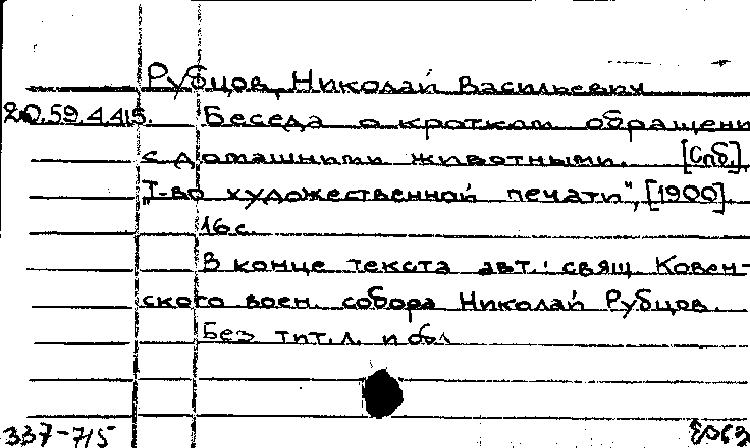 Рубцов, Николай Васильевич
20.59.4.415. Беседа о кротком обращени
с домашними животными. [Спб.],
"Т-во художественной печати", [1900].
16 с.
В конце текста авт.: свящ. Ковен-
ского воен. собора Николай Рубцов.
Без тит. л. и обл.
337-715 8063